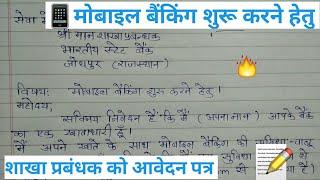 मोबाइल बैंकिंग शुरू करने हेतु
सेवा में
श्री मान शाखा प्रबन्धक
भारतीय स्टेट बैंक
जोधपुर (राजस्थान)
विषय: मोबाइल बैंकिंग शुरू करने हेतु।
महोदय,
सविनय निवेदन है कि मैं (अपना नाम) आपके बैंक
का एक खाताधारी हूँ।
मैं अपने खाते के साथ मोबाइल बैंकिंग की सुविधा चालू
शाखा प्रबंधक को आवेदन पत्र